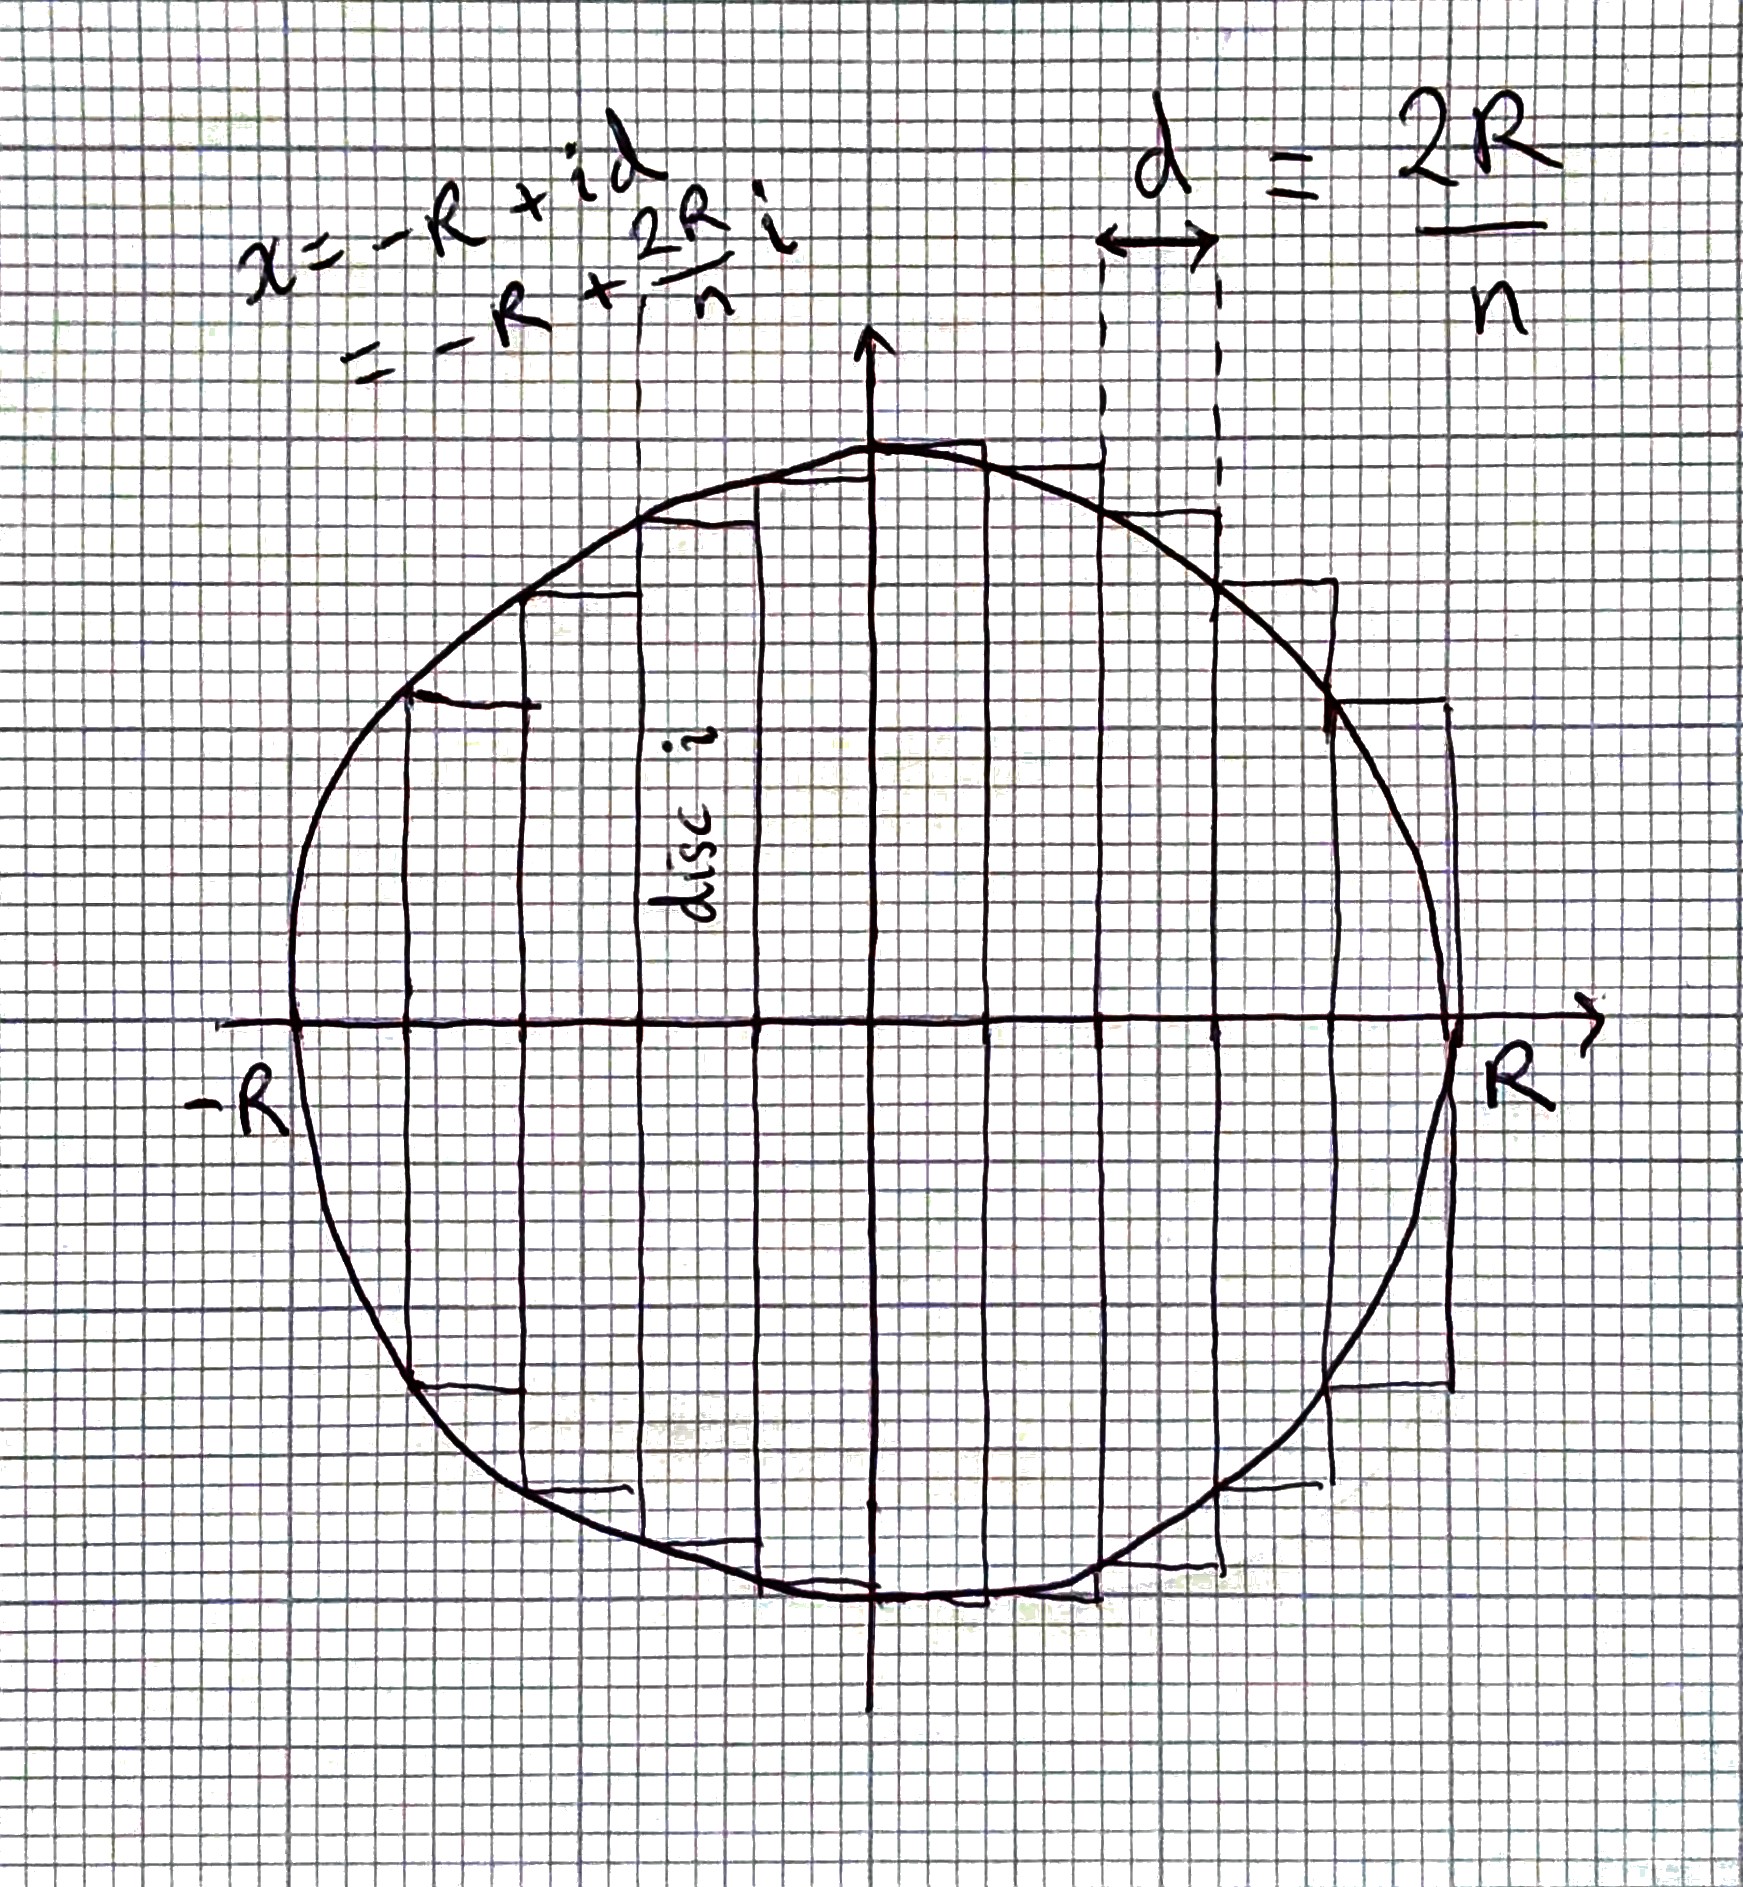 x = -R + id
= -R + 2R/n i
d = 2R/n
disc i
-R
R